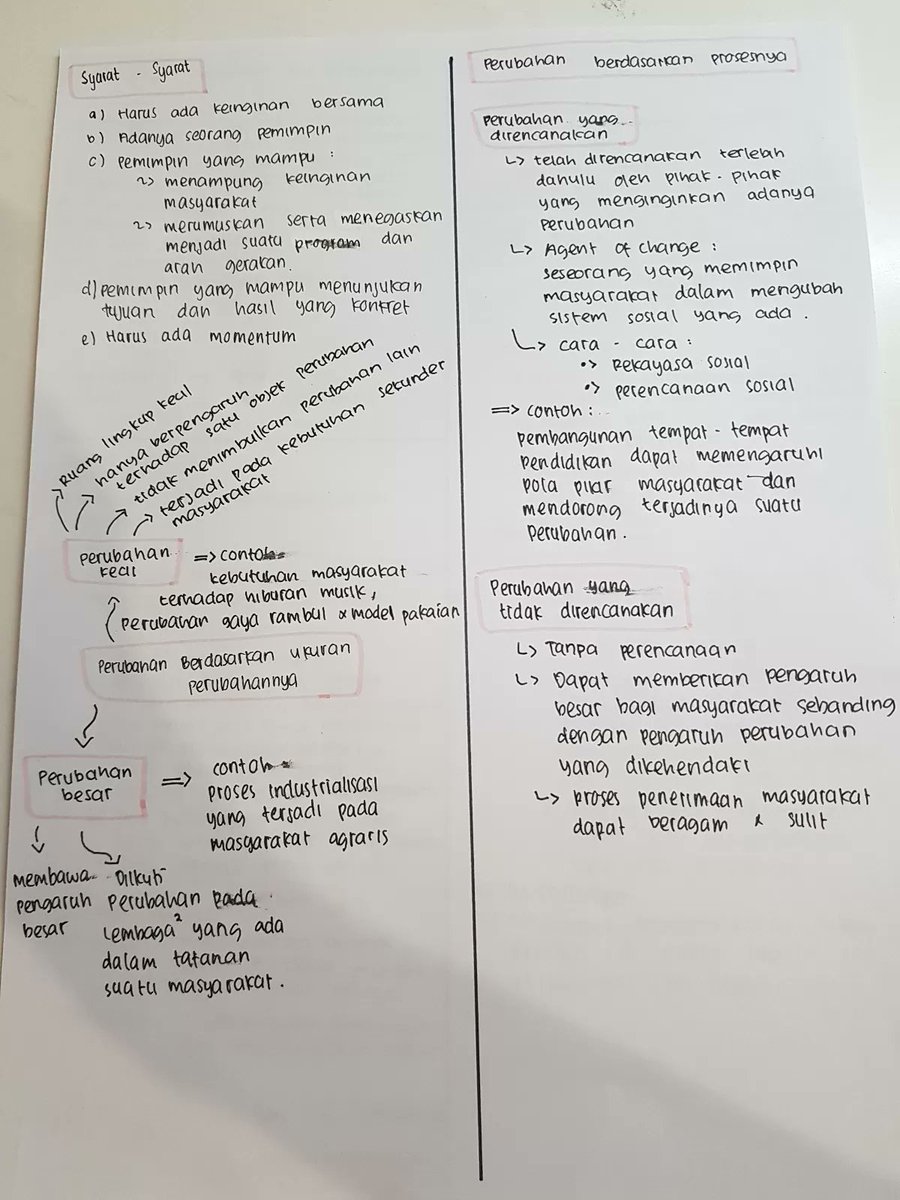 Syarat - Syarat
a) Harus ada keinginan bersama
b) Adanya seorang pemimpin
c) pemimpin yang mampu :
~> menampung keinginan
masyarakat
~> merumuskan serta menegaskan
menjadi suatu program dan
arah gerakan.
d) pemimpin yang mampu menunjukan
tujuan dan hasil yang konkret
e) Harus ada momentum
Ruang lingkup kecil
hanya berpengaruh
terhadap satu objek perubahan
tidak menimbulkan perubahan lain
terjadi pada kebutuhan sekunder
masyarakat
perubahan
kecil
=> contoh=
kebutuhan masyarakat
terhadap hiburan musik,
perubahan gaya rambut & model pakaian
perubahan Berdasarkan ukuran
perubahannya
Perubahan
besar
=> contoh=
proses industrialisasi
yang terjadi pada
masyarakat agraris
membawa
pengaruh
besar
Diikuti
perubahan pada
lembaga² yang ada
dalam tatanan
suatu masyarakat.
perubahan berdasarkan prosesnya
perubahan yang
direncanakan
↳ telah direncanakan terlelah
dahulu oleh pihak-pihak
yang menginginkan adanya
perubahan
↳ Agent of change :
seseorang yang memimpin
masyarakat dalam mengubah
sistem sosial yang ada.
↳ cara - cara :
•> Rekayasa sosial
•> perencanaan sosial
=> contoh :
pembangunan tempat-tempat
pendidikan dapat memengaruhi
pola pikir masyarakat dan
mendorong terjadinya suatu
perubahan.
Perubahan yang
tidak direncanakan
↳ Tanpa perencanaan
↳ Dapat memberikan pengaruh
besar bagi masyarakat sebanding
dengan pengaruh perubahan
yang dikehendaki
↳ proses penerimaan masyarakat
dapat beragam & sulit